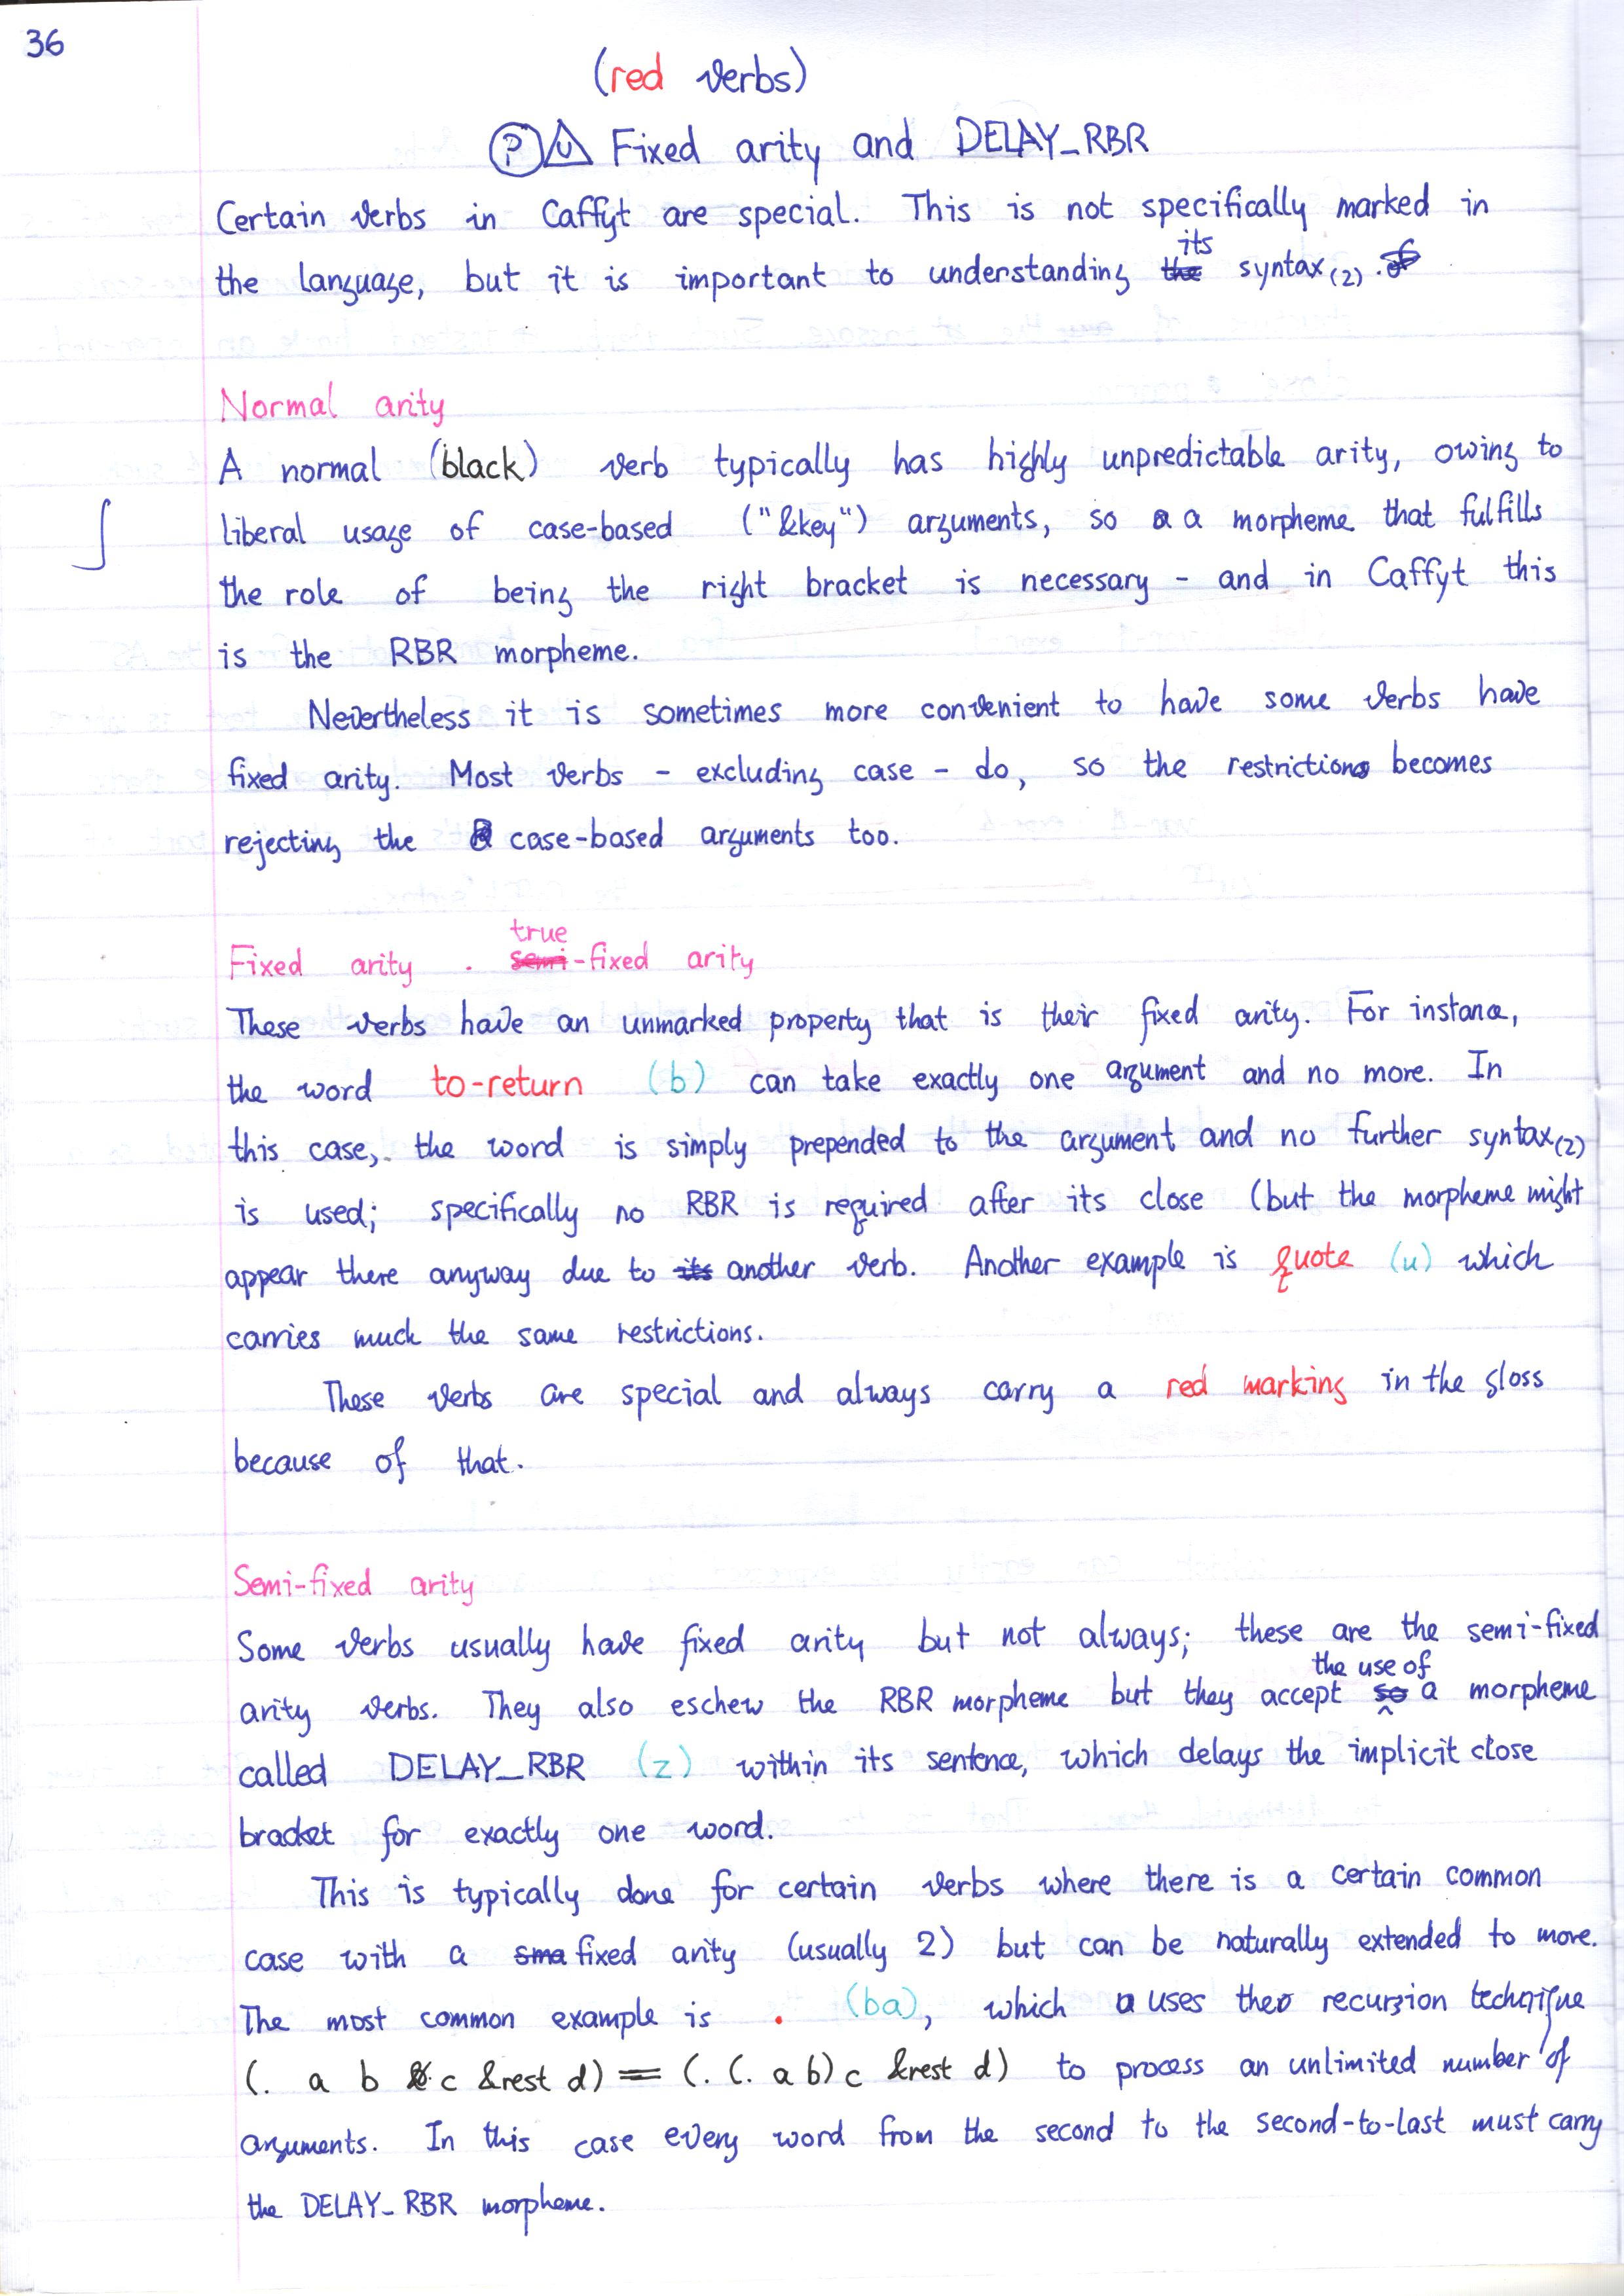 36
(red verbs)
Ⓟ U Fixed arity and DELAY_RBR
Certain verbs in Caffyt are special. This is not specifically marked in
its
the language, but it is important to understanding the syntax(2). of
Normal arity
A normal (black) verb typically has highly unpredictable arity, owing to
liberal usage of case-based ("&key") arguments, so a a morpheme that fulfills
the role of being the right bracket is necessary - and in Caffyt this
is the RBR morpheme.
Nevertheless it is sometimes more convenient to have some verbs have
fixed arity. Most verbs - excluding case - do, so the restrictions becomes
rejecting the case-based arguments too.
true
Fixed arity . semi-fixed arity
These verbs have an unmarked property that is their fixed arity. For instance,
the word to-return (b) can take exactly one argument and no more. In
this case, the word is simply prepended to the argument and no further syntax(2)
is used; specifically no RBR is required after its close (but the morpheme might
appear there anyway due to its another verb. Another example is quote (u) which
carries much the same restrictions.
These verbs are special and always carry a red marking in the gloss
because of that.
Semi-fixed arity
Some verbs usually have fixed arity but not always; these are the semi-fixed
the use of
arity verbs. They also eschew the RBR morpheme but they accept so a morpheme
called DELAY_RBR (z) within its sentence, which delays the implicit close
bracket for exactly one word.
This is typically done for certain verbs where there is a certain common
case with a sma fixed arity (usually 2) but can be naturally extended to more.
The most common example is . (ba), which uses the recursion technique
(. a b c &rest d) = (. (. a b) c &rest d) to process an unlimited number of
arguments. In this case every word from the second to the second-to-last must carry
the DELAY_RBR morpheme.